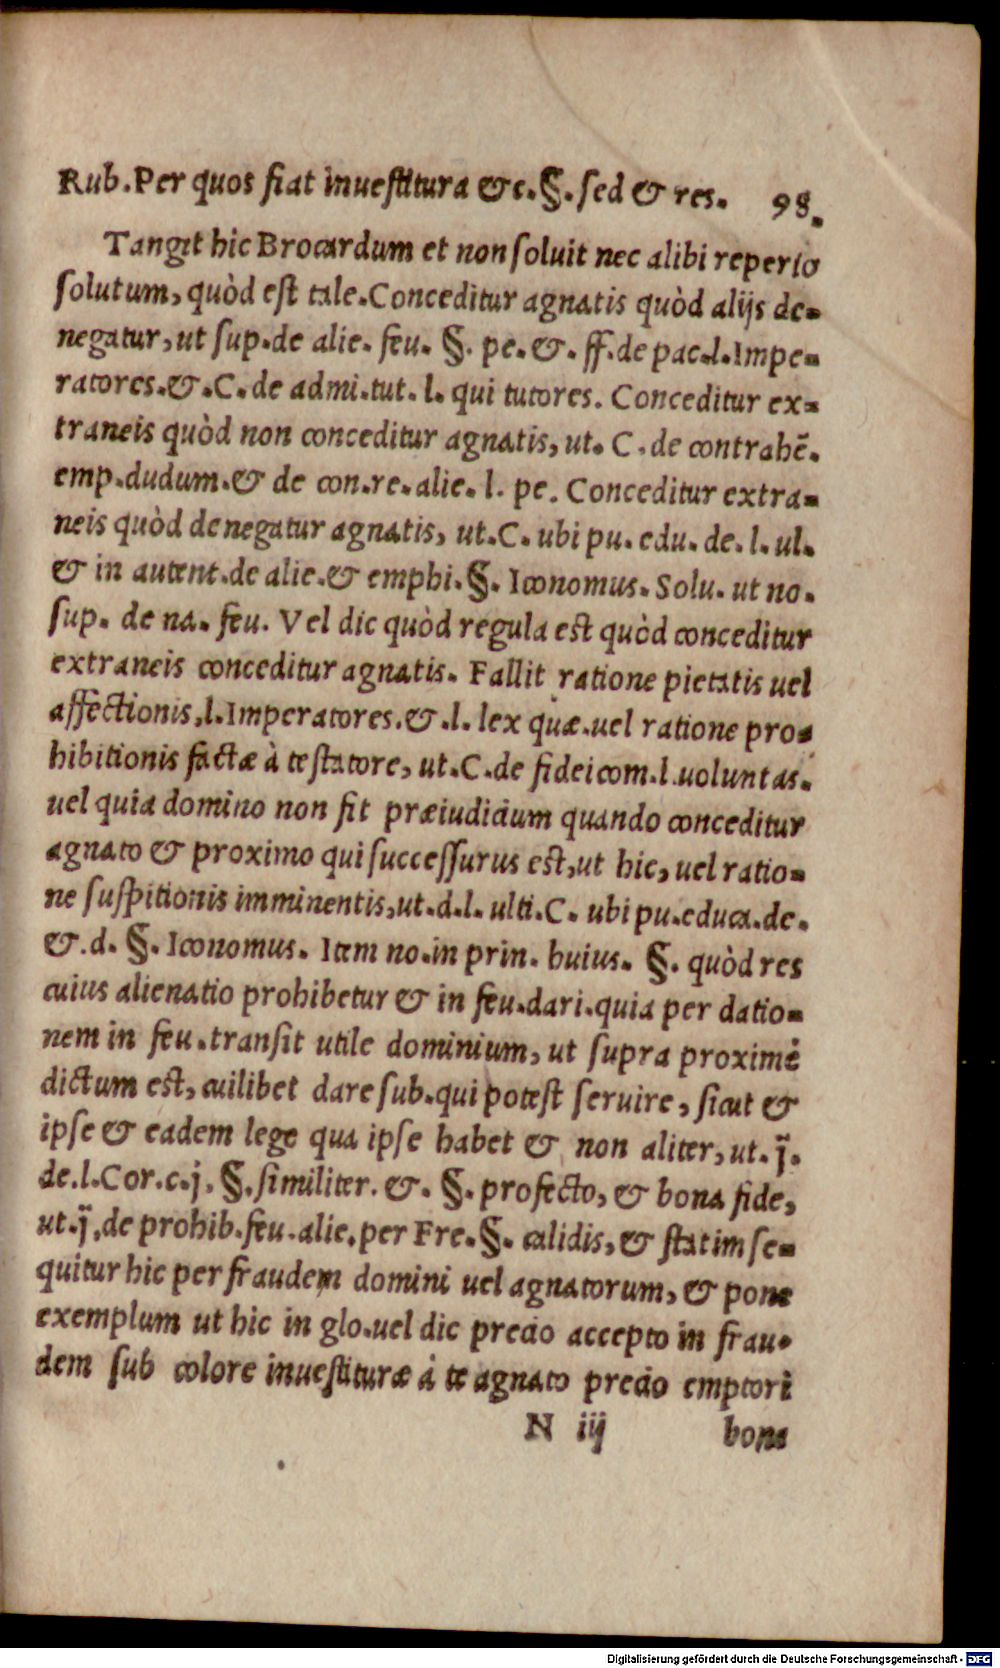 Rub. Per quos fiat inuestitura &c. §. sed & res. 98.
Tangit hic Brocardum et non soluit nec alibi reperio
solutum, quòd est tale. Conceditur agnatis quòd alijs de-
negatur, ut sup. de alie. feu. §. pe. &. ff. de pac. l. Impe-
ratores. &. C. de admi. tut. l. qui tutores. Conceditur ex-
traneis quòd non conceditur agnatis, ut. C. de contrahē.
emp. dudum. & de con. re. alie. l. pe. Conceditur extra-
neis quòd denegatur agnatis, ut. C. ubi pu. edu. de. l. ul.
& in autent. de alie. & emphi. §. Iconomus. Solu. ut no.
sup. de na. feu. Vel dic quòd regula est quòd conceditur
extraneis conceditur agnatis. Fallit ratione pietatis uel
affectionis, l. Imperatores. &. l. lex quæ. uel ratione pro-
hibitionis factæ à testatore, ut. C. de fideicom. l. uoluntas.
uel quia domino non fit præiudicium quando conceditur
agnato & proximo qui successurus est, ut hic, uel ratio-
ne suspitionis imminentis, ut. d. l. ulti. C. ubi pu. educa. de.
&. d. §. Iconomus. Item no. in prin. huius. §. quòd res
cuius alienatio prohibetur & in feu. dari. quia per datio-
nem in feu. transit utile dominium, ut supra proximè
dictum est, cuilibet dare sub. qui potest seruire, sicut &
ipse & eadem lege qua ipse habet & non aliter, ut. j̈.
de. l. Cor. c. j. §. similiter. &. §. profecto, & bona fide,
ut. j̈. de prohib. feu. alie. per Fre. §. calidis, & statim se-
quitur hic per fraudem domini uel agnatorum, & pone
exemplum ut hic in glo. uel dic precio accepto in frau-
dem sub colore inuestituræ à te agnato precio emptori
N iij bona
Digitalisierung gefördert durch die Deutsche Forschungsgemeinschaft - DFG